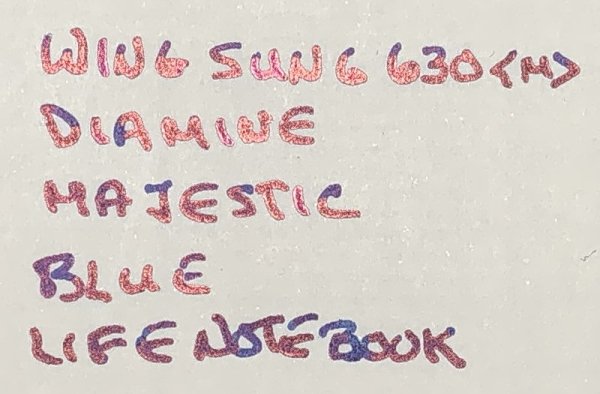 WING SUNG 630 <M>
DIAMINE
MAJESTIC
BLUE
LIFE NOTEBOOK